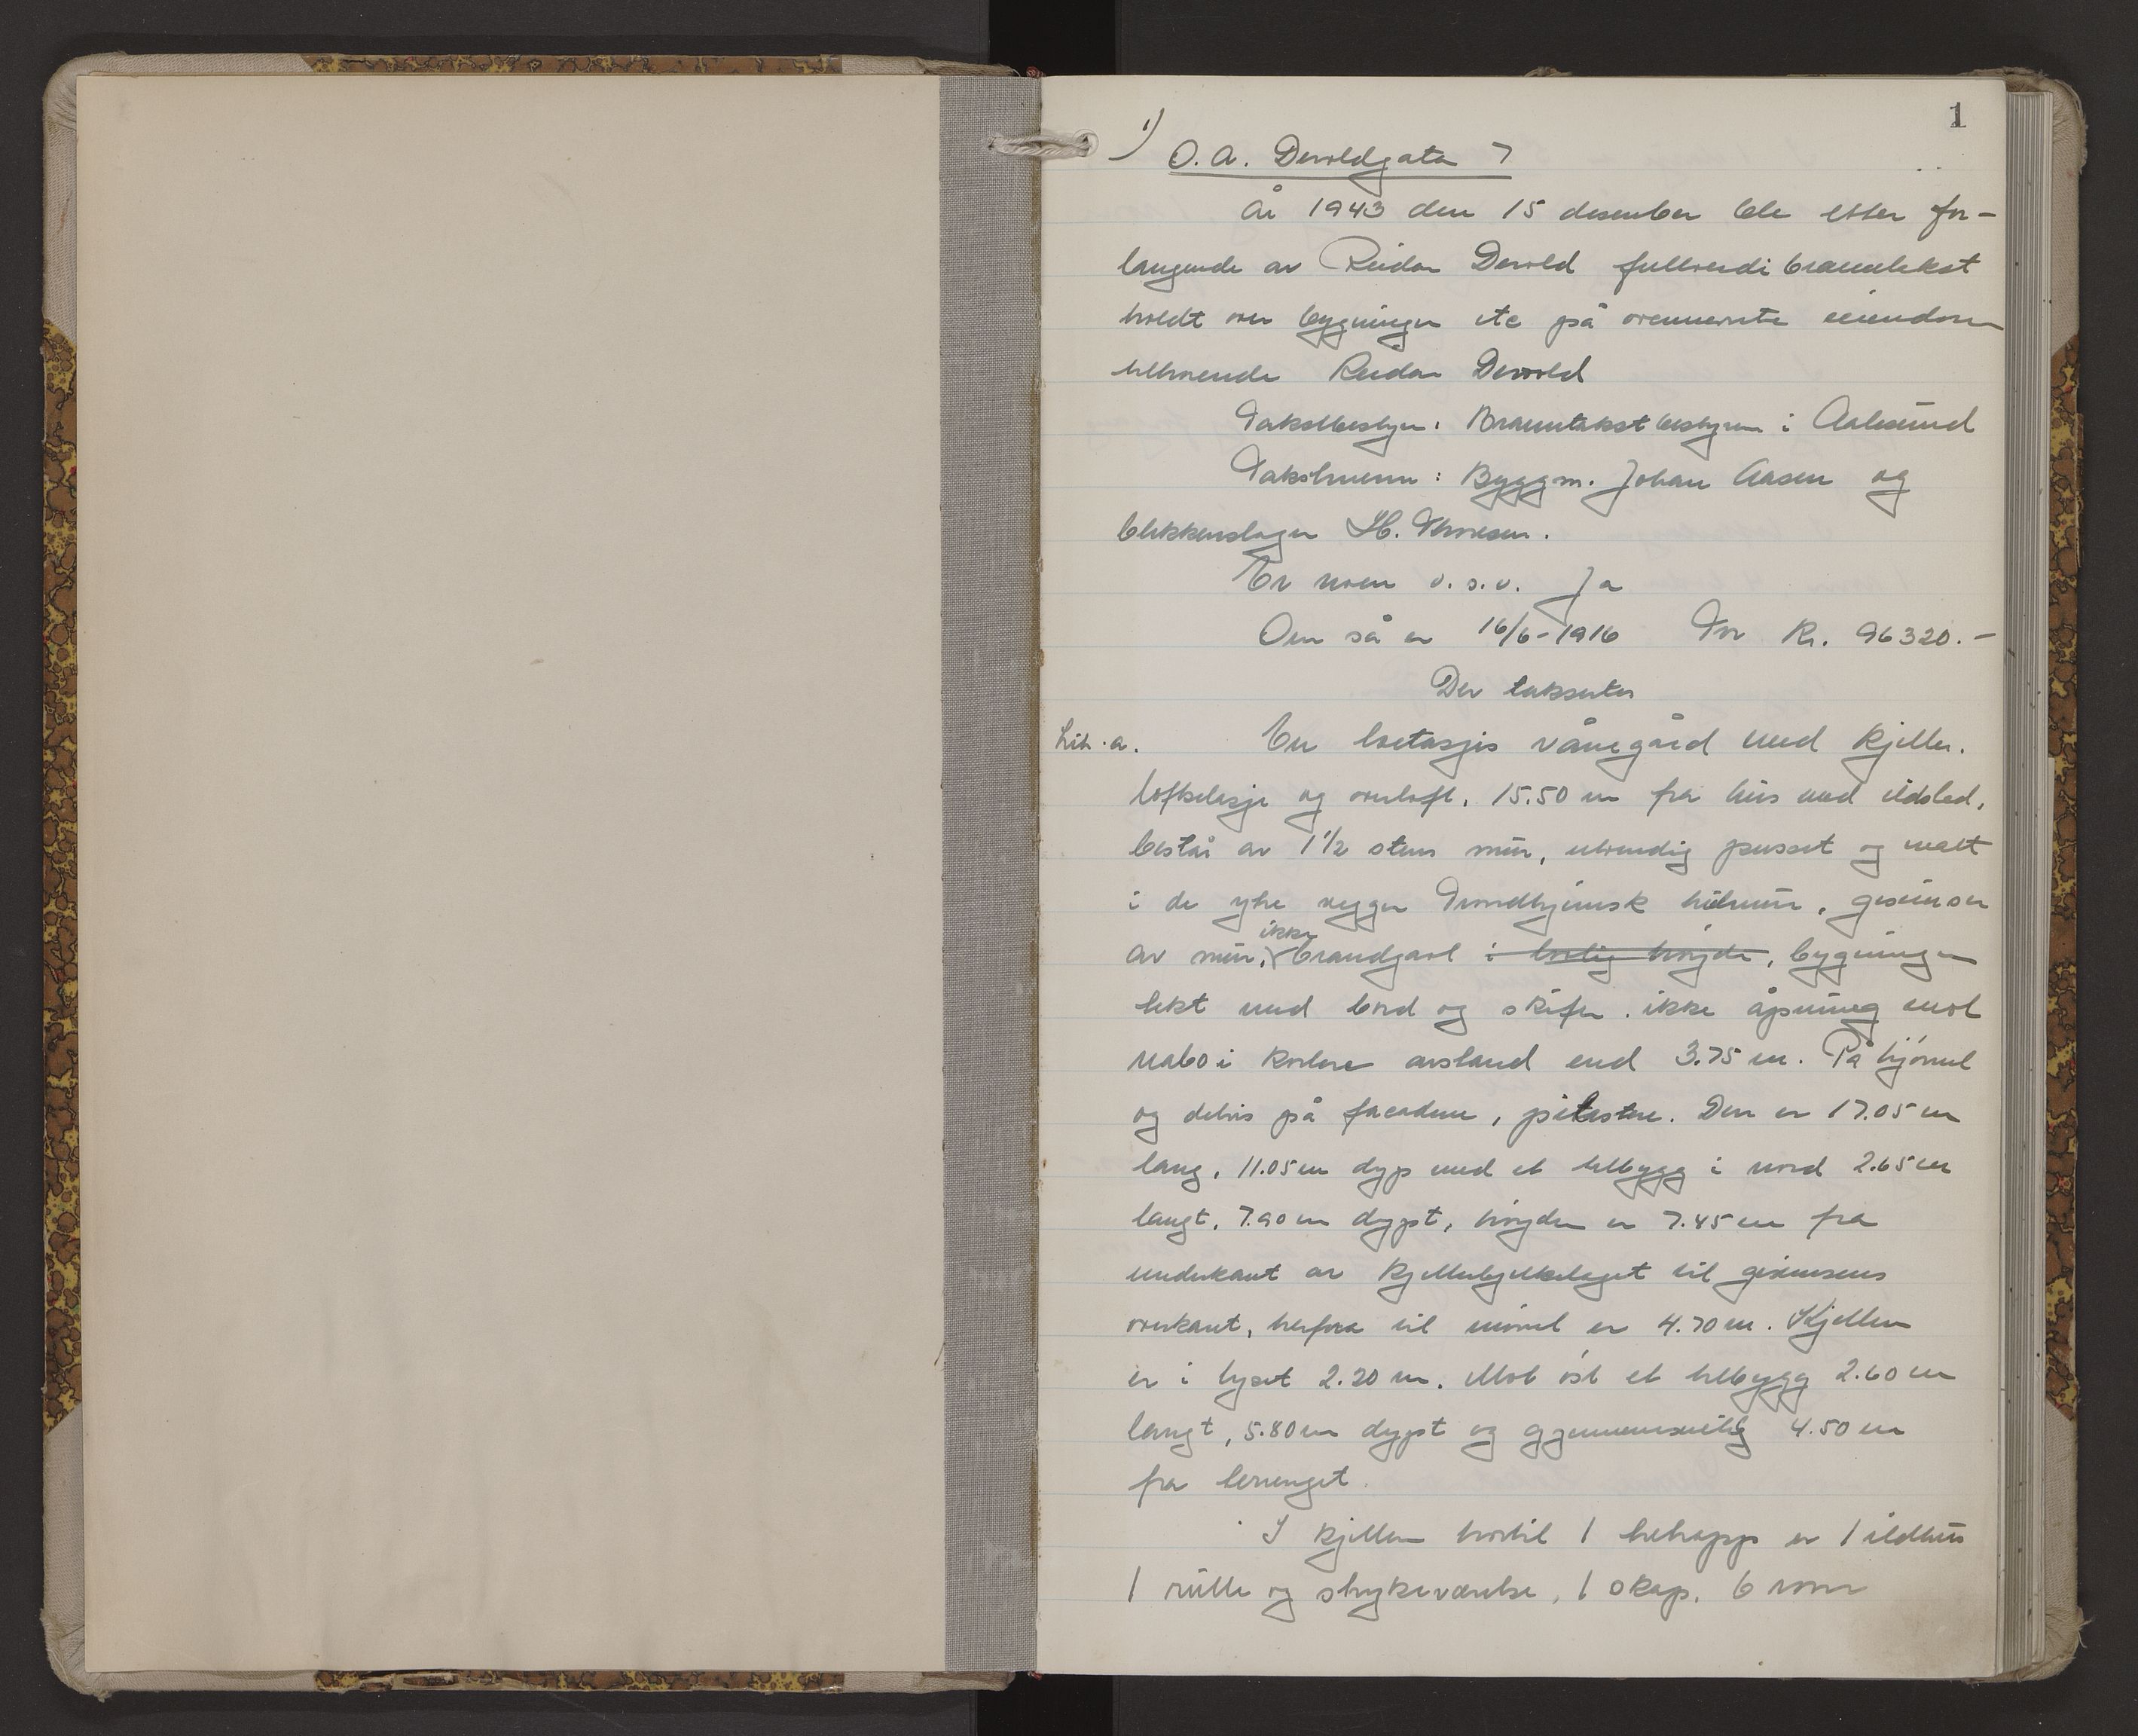 1
1) O. A. Devoldgata 7
År 1943 den 15 desember ble etter for-
langende av Reidar Devold fullverdi branntakst
holdt over bygninger etc på ovennevnte eiendom
tilhørende Reidar Devold
Takstbestyr: Branntakstbestyreren i Aalesund
Takstmenn: Byggm. Johan Aasen og
blikkenslager H. Thoresen.
Er noen o.s.v. Ja
Om så er 16/6-1916 For Kr. 96320.-
Der taksertes
Litr. a. En toetasjes vånegård med kjeller.
loftsetasje og overloft, 15.50 m fra hus med ildsted,
består av 1 1/2 stens mur, utvendig pusset og malt
i de ytre vegger Trondhjemsk hulmur, gesimser
av mur, ikke brandgavl i lovlig høyde, bygningen
tekt med bord og skifer. ikke åpning mot
nabo i kortere avstand end 3.75 m. På hjørnet
og delvis på facadene, pilastre. Den er 17.05 m
lang, 11.05 m dyp med et tilbygg i nord 2.65 m
langt, 7.90 m dypt, høyden er 7.45 m fra
underkant av kjellerbjelkelaget til gesimsens
overkant, herfra til mønet er 4.70 m. Kjelleren
er i lyset 2.20 m. Mot øst et tilbygg 2.60 m
langt, 5.80 m dypt og gjennemsnitlig 4.50 m
fra terrenget.
I kjelleren hvortil 1 betrapp er 1 ildhus
1 rulle og strykeværelse, 1 skap, 6 rom